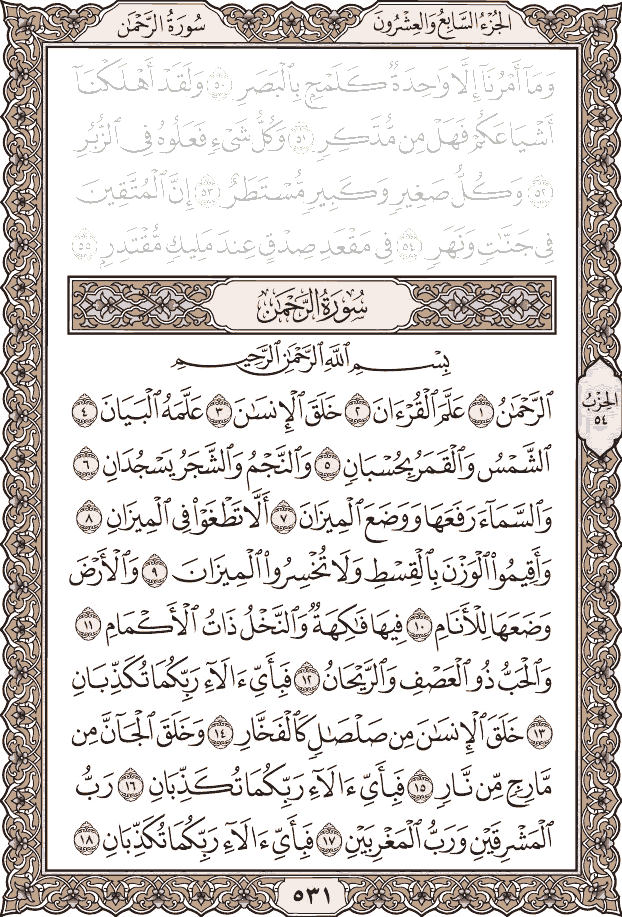 الجُزْءُ السَّابِعُ وَالعِشْرُونَ
سُورَةُ الرَّحْمَٰن
وَمَآ أَمْرُنَآ إِلَّا وَٰحِدَةٌ كَلَمْحٍۭ بِٱلْبَصَرِ ٥٠ وَلَقَدْ أَهْلَكْنَآ
أَشْيَاعَكُمْ فَهَلْ مِن مُّدَّكِرٍ ٥١ وَكُلُّ شَىْءٍ فَعَلُوهُ فِى ٱلزُّبُرِ
٥٢ وَكُلُّ صَغِيرٍ وَكَبِيرٍ مُّسْتَطَرٌ ٥٣ إِنَّ ٱلْمُتَّقِينَ
فِى جَنَّٰتٍ وَنَهَرٍ ٥٤ فِى مَقْعَدِ صِدْقٍ عِندَ مَلِيكٍ مُّقْتَدِرٍۭ ٥٥
سُورَةُ الرَّحْمَٰن
بِسْمِ ٱللَّهِ ٱلرَّحْمَٰنِ ٱلرَّحِيمِ
ٱلرَّحْمَٰنُ ١ عَلَّمَ ٱلْقُرْءَانَ ٢ خَلَقَ ٱلْإِنسَٰنَ ٣ عَلَّمَهُ ٱلْبَيَانَ ٤
ٱلشَّمْسُ وَٱلْقَمَرُ بِحُسْبَانٍ ٥ وَٱلنَّجْمُ وَٱلشَّجَرُ يَسْجُدَانِ ٦
وَٱلسَّمَآءَ رَفَعَهَا وَوَضَعَ ٱلْمِيزَانَ ٧ أَلَّا تَطْغَوْا۟ فِى ٱلْمِيزَانِ ٨
وَأَقِيمُوا۟ ٱلْوَزْنَ بِٱلْقِسْطِ وَلَا تُخْسِرُوا۟ ٱلْمِيزَانَ ٩ وَٱلْأَرْضَ
وَضَعَهَا لِلْأَنَامِ ١٠ فِيهَا فَٰكِهَةٌ وَٱلنَّخْلُ ذَاتُ ٱلْأَكْمَامِ ١١
وَٱلْحَبُّ ذُو ٱلْعَصْفِ وَٱلرَّيْحَانُ ١٢ فَبِأَىِّ ءَالَآءِ رَبِّكُمَا تُكَذِّبَانِ
١٣ خَلَقَ ٱلْإِنسَٰنَ مِن صَلْصَٰلٍ كَٱلْفَخَّارِ ١٤ وَخَلَقَ ٱلْجَآنَّ مِن
مَّارِجٍ مِّن نَّارٍ ١٥ فَبِأَىِّ ءَالَآءِ رَبِّكُمَا تُكَذِّبَانِ ١٦ رَبُّ
ٱلْمَشْرِقَيْنِ وَرَبُّ ٱلْمَغْرِبَيْنِ ١٧ فَبِأَىِّ ءَالَآءِ رَبِّكُمَا تُكَذِّبَانِ ١٨
الحِزْبُ
٥٤
٥٣١